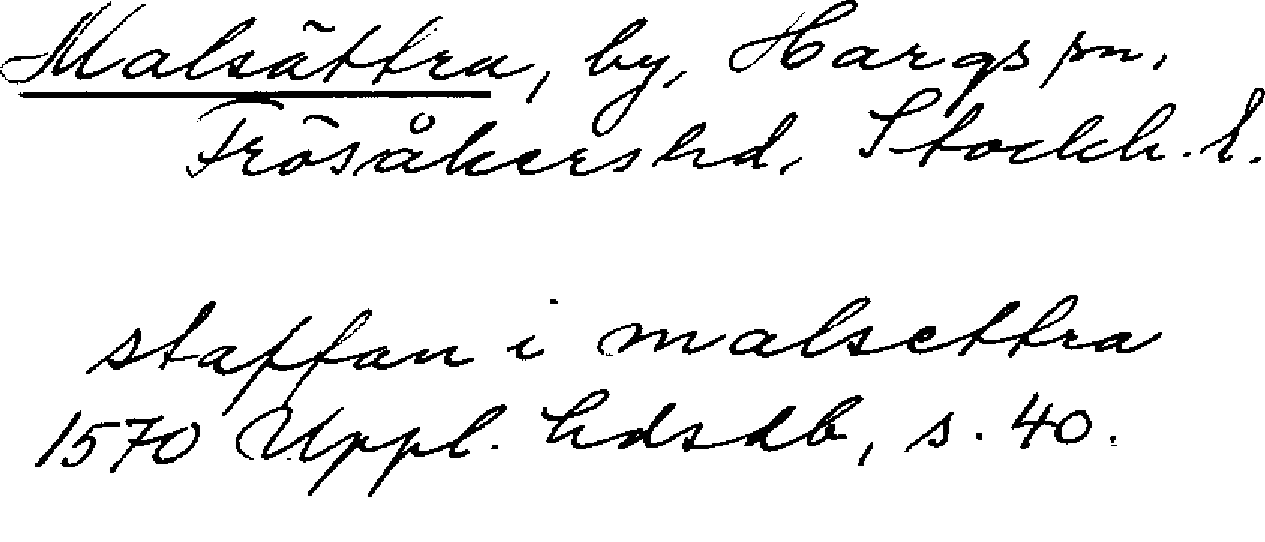 Malsättra, by, Hargs sn,
Frösåkers hd, Stockh. l.
staffan i malsettra
1570 Uppl. hdsdb, s. 40.